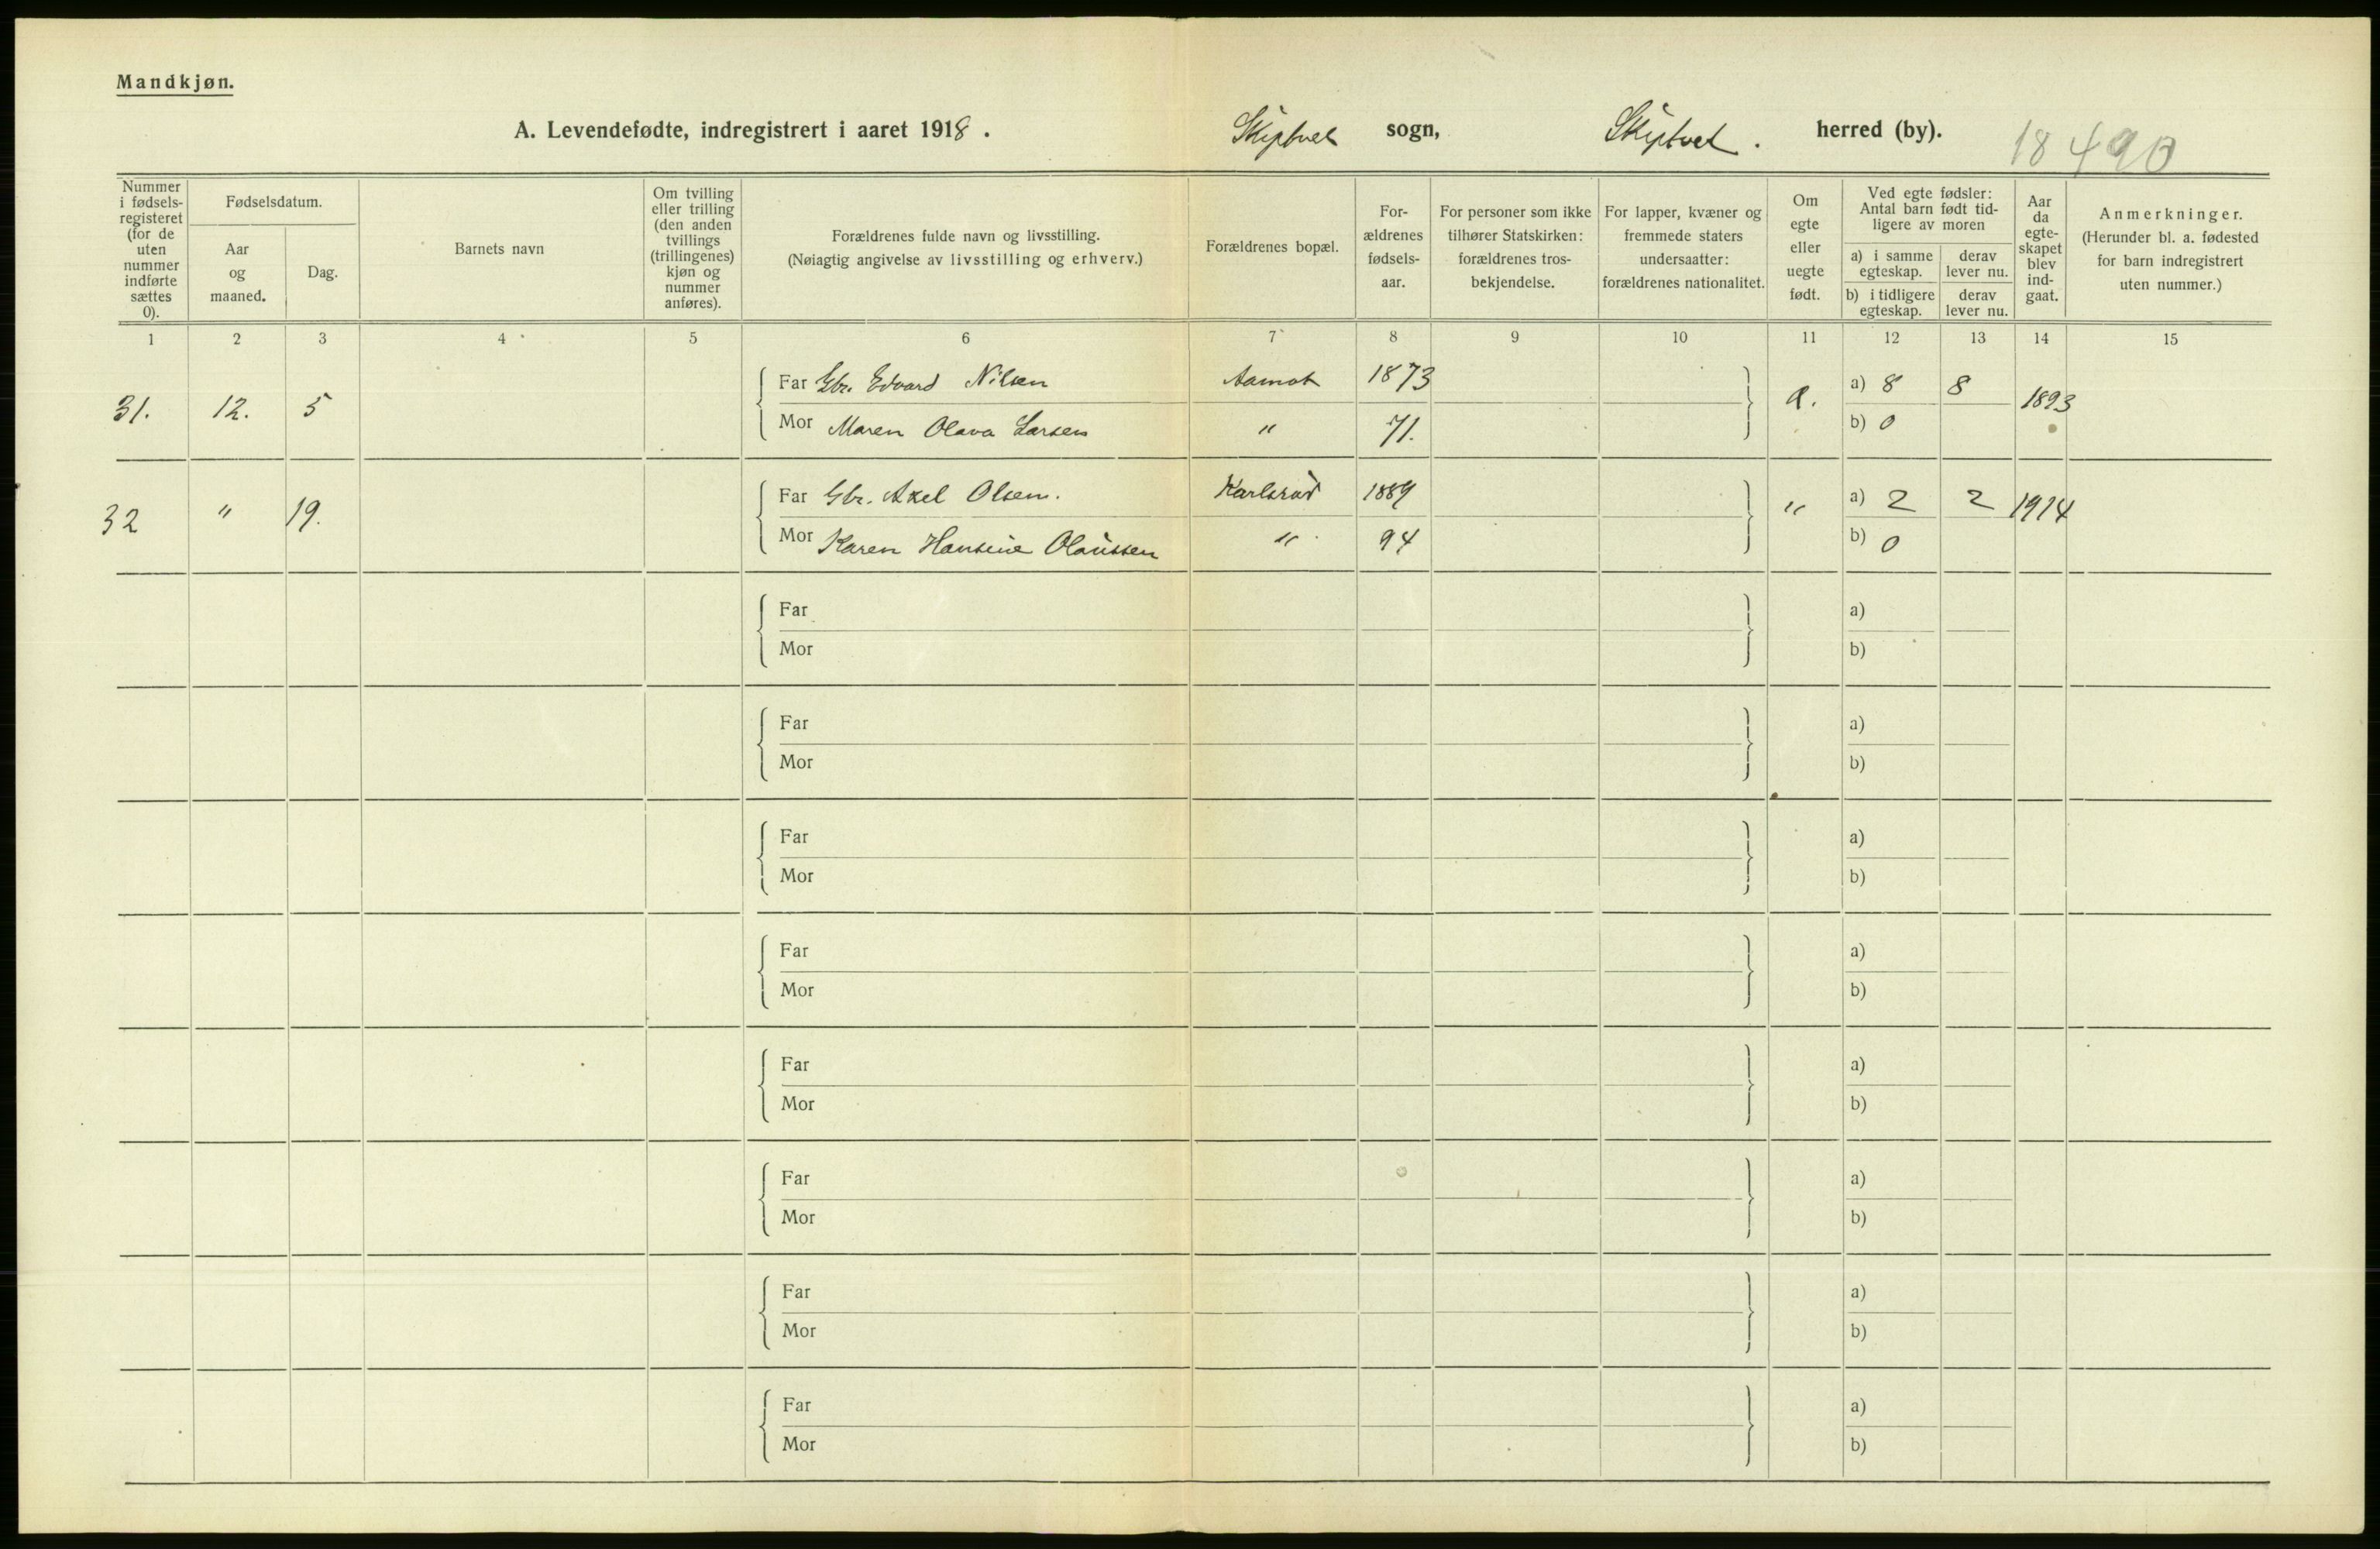 Mandkjøn.
A. Levendefødte, indregistrert i aaret 1918. Skiptvet sogn, Skiptvet. herred (by). 18 490
Nummer i fødsels-registeret (for de uten nummer indførte sættes 0).
Fødselsdatum.
Aar og maaned.
Dag.
Barnets navn
Om tvilling eller trilling (den anden tvillings (trillingenes) kjøn og nummer anføres).
Forældrenes fulde navn og livsstilling.
(Nøiagtig angivelse av livsstilling og erhverv.)
Forældrenes bopæl.
For-ældrenes fødsels-aar.
For personer som ikke tilhører Statskirken: forældrenes tros-bekjendelse.
For lapper, kvæner og fremmede staters undersaatter: forældrenes nationalitet.
Om egte eller uegte født.
Ved egte fødsler: Antal barn født tid-ligere av moren
a) i samme egteskap.
derav lever nu.
b) i tidligere egteskap.
derav lever nu.
Aar da egte-skapet blev ind-gaat.
Anmerkninger.
(Herunder bl. a. fødested for barn indregistrert uten nummer.)
1 2 3 4 5 6 7 8 9 10 11 12 13 14 15
31. 12. 5 Far Gbr. Edvard Nilsen Aamot 1873 a) 8 8 1893
Mor Maren Olava Larsen " 71. b) 0
32 " 19. Far Gbr. Axel Olsen. Karlsrud 1889 " a) 2 2 1914
Mor Karen Hansine Olaussen " 94 b) 0
Far a)
Mor b)
Far a)
Mor b)
Far a)
Mor b)
Far a)
Mor b)
Far a)
Mor b)
Far a)
Mor b)
Far a)
Mor b)
Far a)
Mor b)